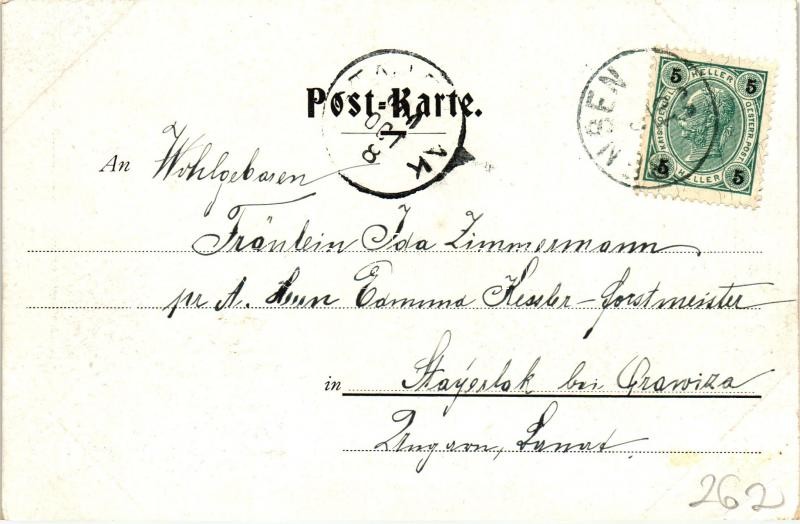 Post-Karte.
An Wohlgeboren
Fräulein Ida Zimmermann
pr A. Herrn Edmund Kessler-Forstmeister
in Stayerlak bei Orawiza
Ungarn, Banat
5 HELLER 5
KAIS. KOE. OESTERR. POST.
5 HELLER 5
262